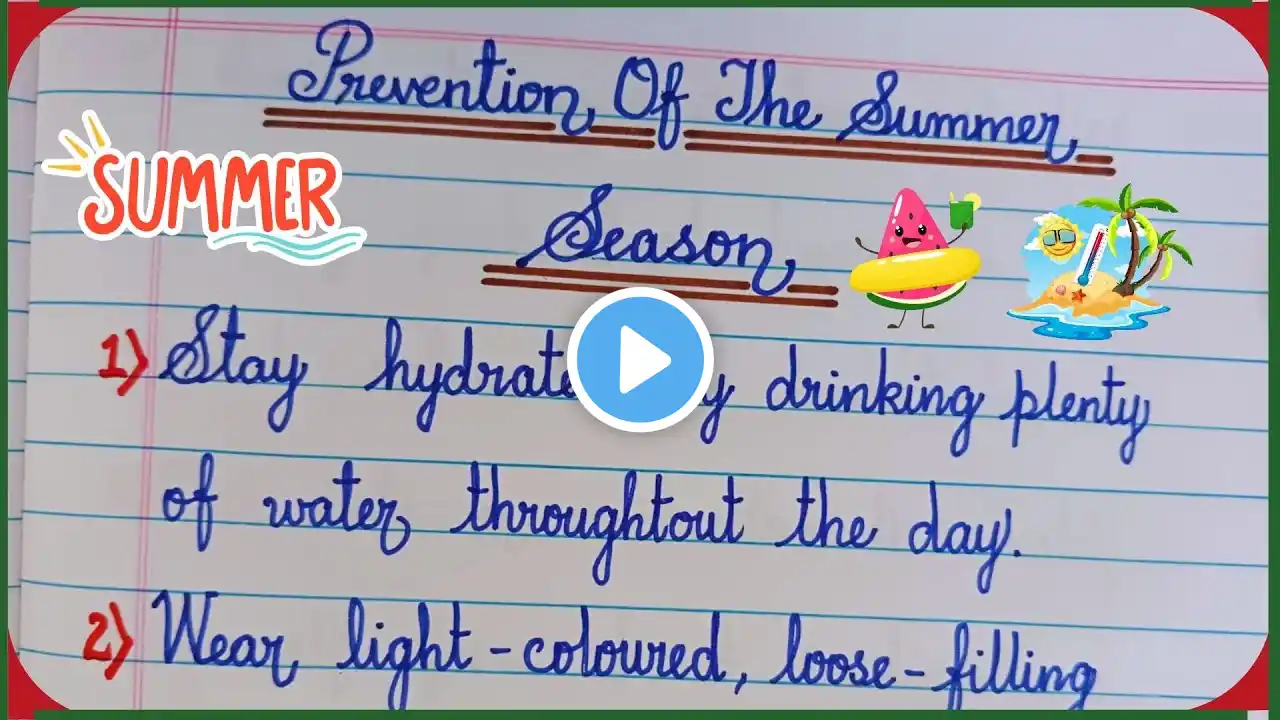 Prevention Of The Summer
SUMMER
Season
1) Stay hydrate y drinking plenty
of water throughtout the day.
2) Wear light-coloured, loose-filling